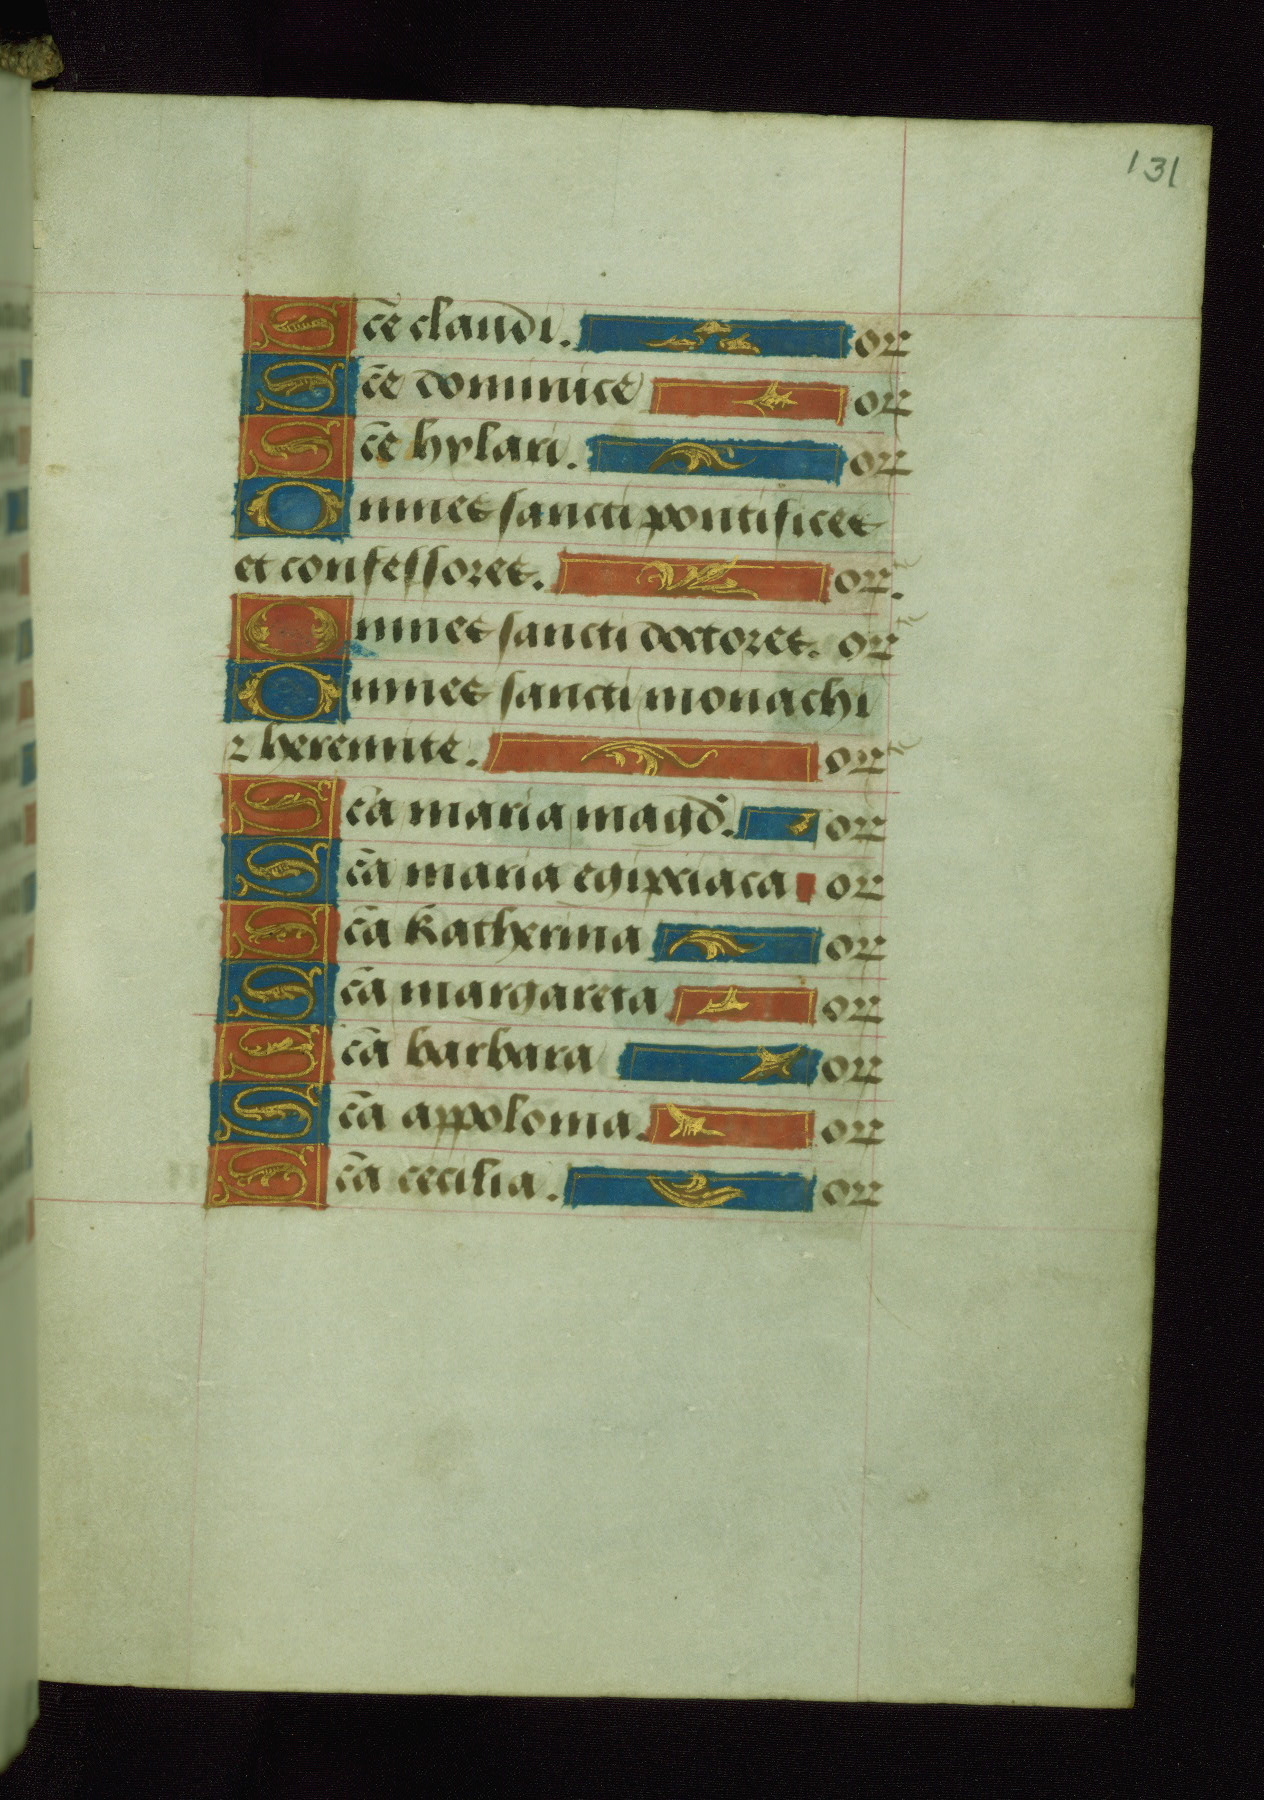 131
Sc̄e claudi. or
Sc̄e dominice or
Sc̄e hylari. or
Omnes sancti pontifices
et confessores. or.
Omnes sancti doctores. or
Omnes sancti monachi
⁊ heremite. or
Sc̄a maria magd̄. or
Sc̄a maria egipxiaca or
Sc̄a katherina or
Sc̄a margareta or
Sc̄a barbara or
Sc̄a appolonia. or
Sc̄a cecilia. or